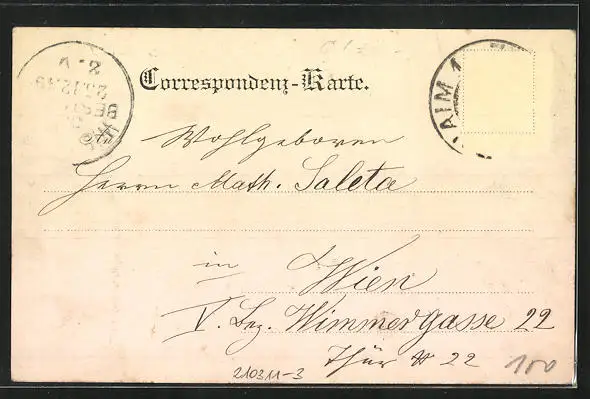 Correspondenz-Karte.
An
Wohlgeboren
Herrn Math. Saleta
in Wien
V. Bez. Wimmergasse 22
Thür # 22
210311-3
100